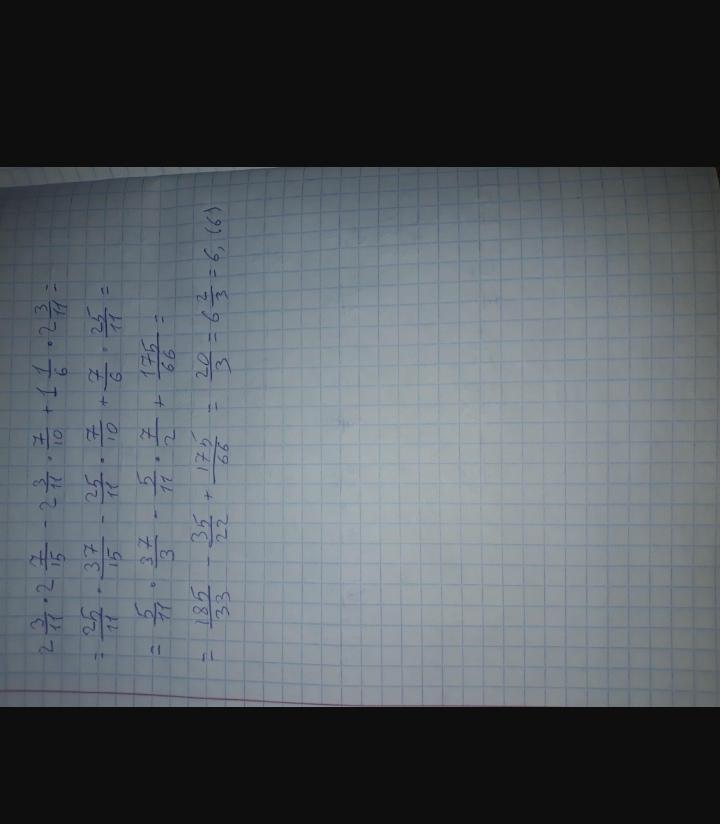 2 3/11 · 2 7/15 - 2 3/11 · 7/10 + 1 1/6 · 2 3/11 =
= 25/11 · 37/15 - 25/11 · 7/10 + 7/6 · 25/11 =
= 5/11 · 37/3 - 5/11 · 7/2 + 175/66 =
= 185/33 - 35/22 + 175/66 = 20/3 = 6 2/3 = 6,(6)